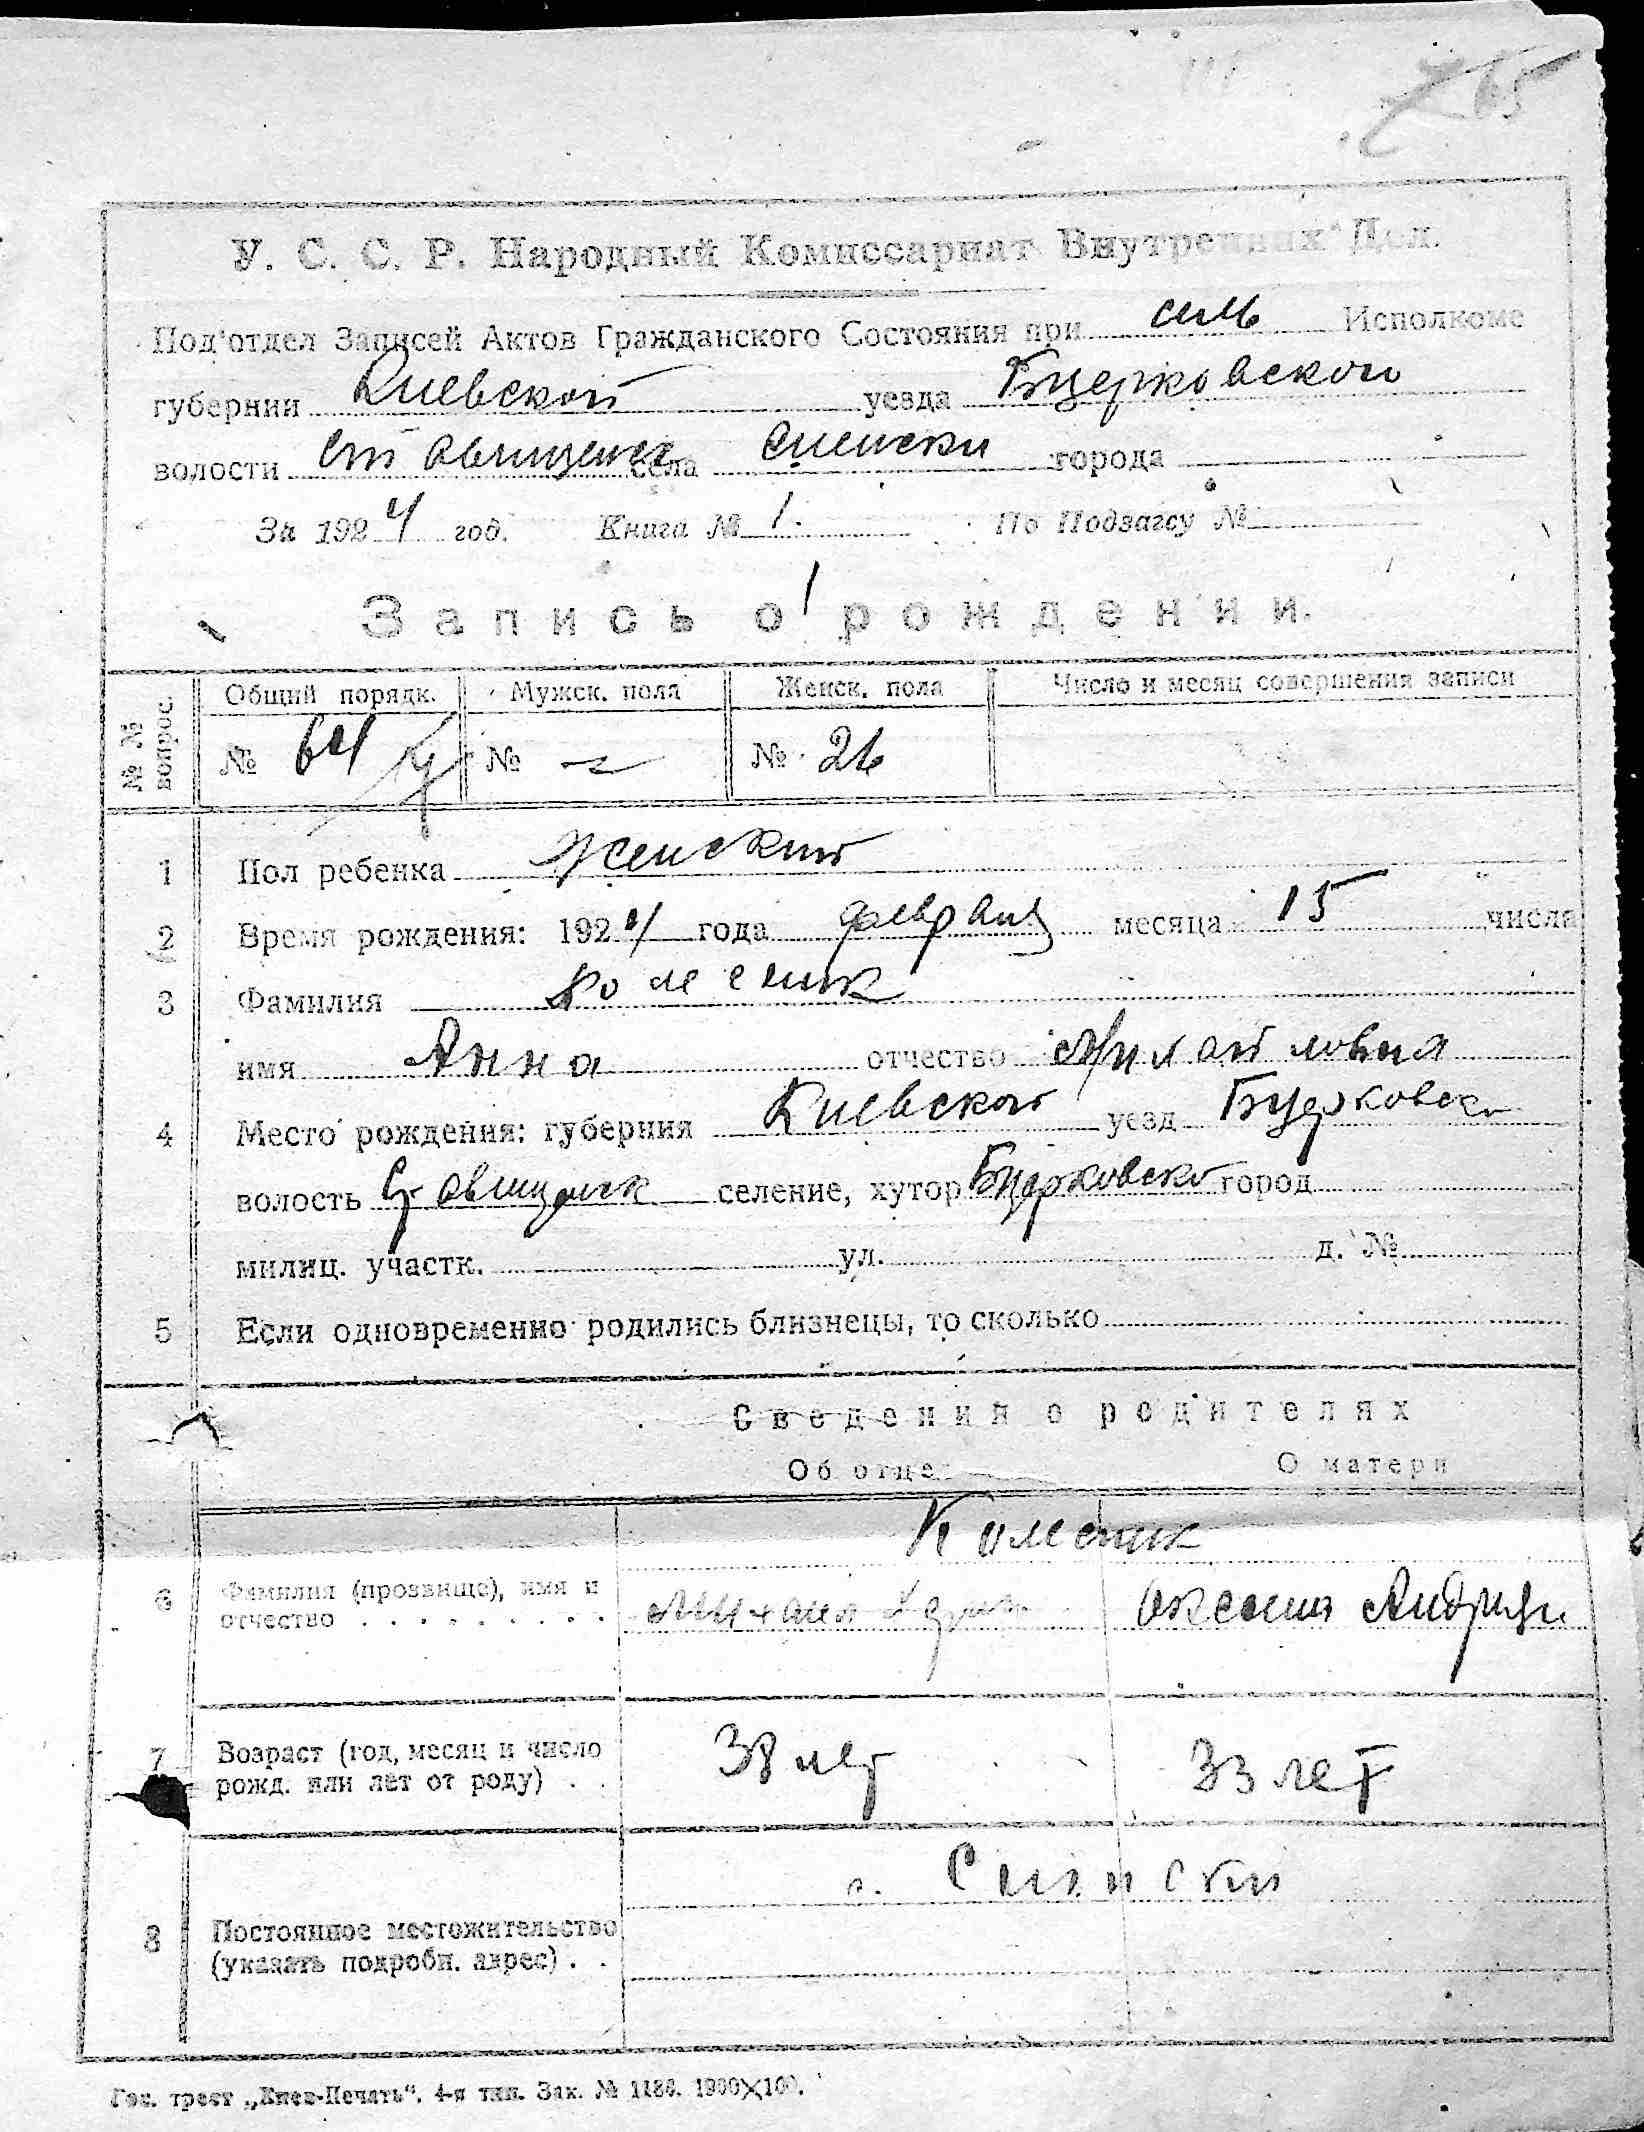 65
У. С. С. Р. Народный Комиссариат Внутренних Дел.
Под'отдел Записей Актов Гражданского Состояния при сель Исполкоме
губернии Киевской уезда Бцерковского
волости села города
За 1924 год. Книга № 1. По Подзагсу №
Запись о рождении.
№№ вопрос.
Общий порядк. Мужск. пола Женск. пола Число и месяц совершения записи
№ 64 № № 26
1 Пол ребенка Женский
2 Время рождения: 1924 года февраля месяца 15 числа
3 Фамилия Колесник
имя Анна отчество Михайловна
4 Место рождения: губерния Киевской уезд Бцерковско
волость Ставищанск селение, хутор Бцерковско город
милиц. участк. ул. д. №
5 Если одновременно родились близнецы, то сколько
Сведения о родителях
Об отце О матери
Колесник
6 Фамилия (прозвище), имя и
отчество . . . . . . . . . Михаил Оксения Андреев
7 Возраст (год, месяц и число
рожд. или лет от роду) . . 38 лет 33 лет
с.
8 Постоянное местожительство
(указать подробн. адрес) . .
Гос. трест „Киев-Печать“. 4-я тип. Зак. № 1186. 1900×100.